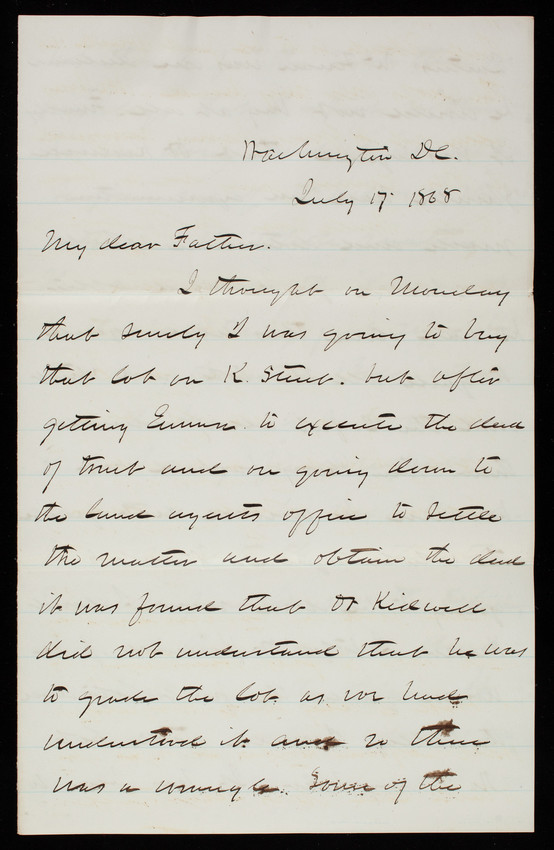 Washington DC.
July 17 1868
My dear Father.
I thought on Monday
that surely I was going to buy
that lot on K. Street. but after
getting Emma to execute the deed
of trust and on going down to
the land agents office to settle
the matter and obtain the deed
it was found that Dr Kidwell
did not understand that he was
to grade the lot as we had
understood it and so there
was a wrangle. Some of the